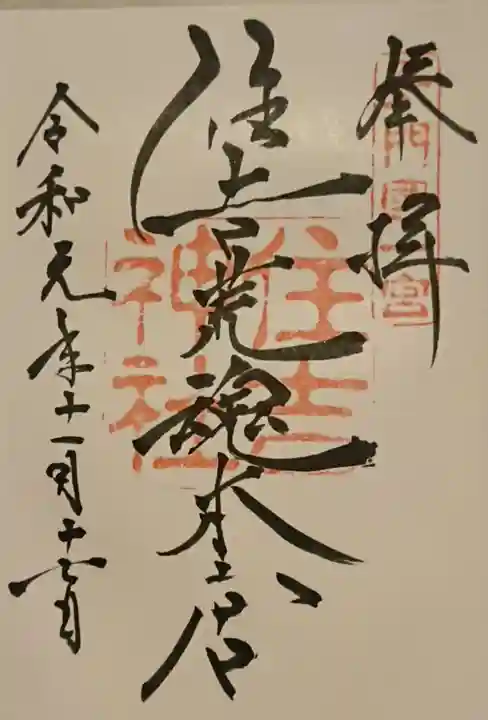 奉拝
長門國一宮
住吉荒魂本宮
住吉神社
令和元年十一月十六日